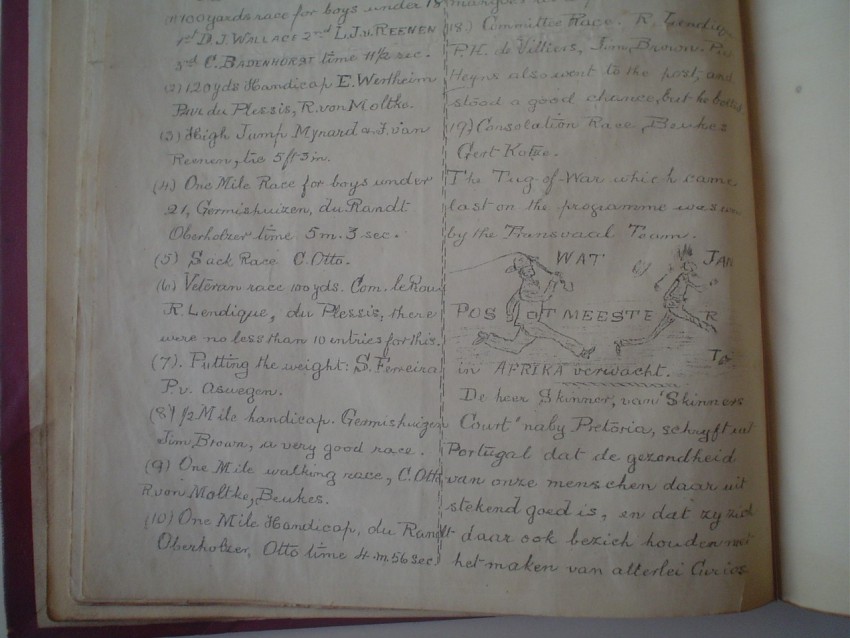 (1) 100 yards race for boys under 18
1st D.J. WALLACE 2nd L.J.v. REENEN
3rd C. BADENHORST time 11½ sec.
(2) 120 yds Handicap E. Wertheim
Paul du Plessis, R. von Moltke.
(3) High Jump Mynard & J. van
Reenen, tie 5 ft 3 in.
(4) One Mile Race for boys under
21, Germishuizen, du Randt
Oberholzer time 5 m. 3 sec.
(5) Sack Race C. Otto.
(6) Veteran race 100 yds. Com. le Roux
R. Lendique, du Plessis, there
were no less than 10 entries for this.
(7). Putting the weight: S. Ferreira
P.v. Aswegen.
(8) ½ Mile handicap. Germishuizen
Jim, Brown, a very good race.
(9) One Mile walking race, C. Otto
R. von Moltke, Beukes.
(10) One Mile Handicap, du Randt
Oberholzer, Otto time 4.m.56 sec
18.) Committee Race. R. Lendique
P.H. de Villiers, Jim, Brown. P.v.
Heyns also went to the post, and
stood a good chance, but he bolted
(19) Consolation Race, Beukes
Gert Kotze.
The Tug-of-War which came
last on the programme was won
by the Transvaal Team.
WAT JAN
POS OT MEESTE R
TO
in AFRIKA verwacht.
De heer Skinner, van "Skinners
Court" naby Pretoria, schryft uit
Portugal dat de gezondheid
van onze menschen daar uit
stekend goed is, en dat zy zich
daar ook bezich houden met
het maken van allerlei Curios